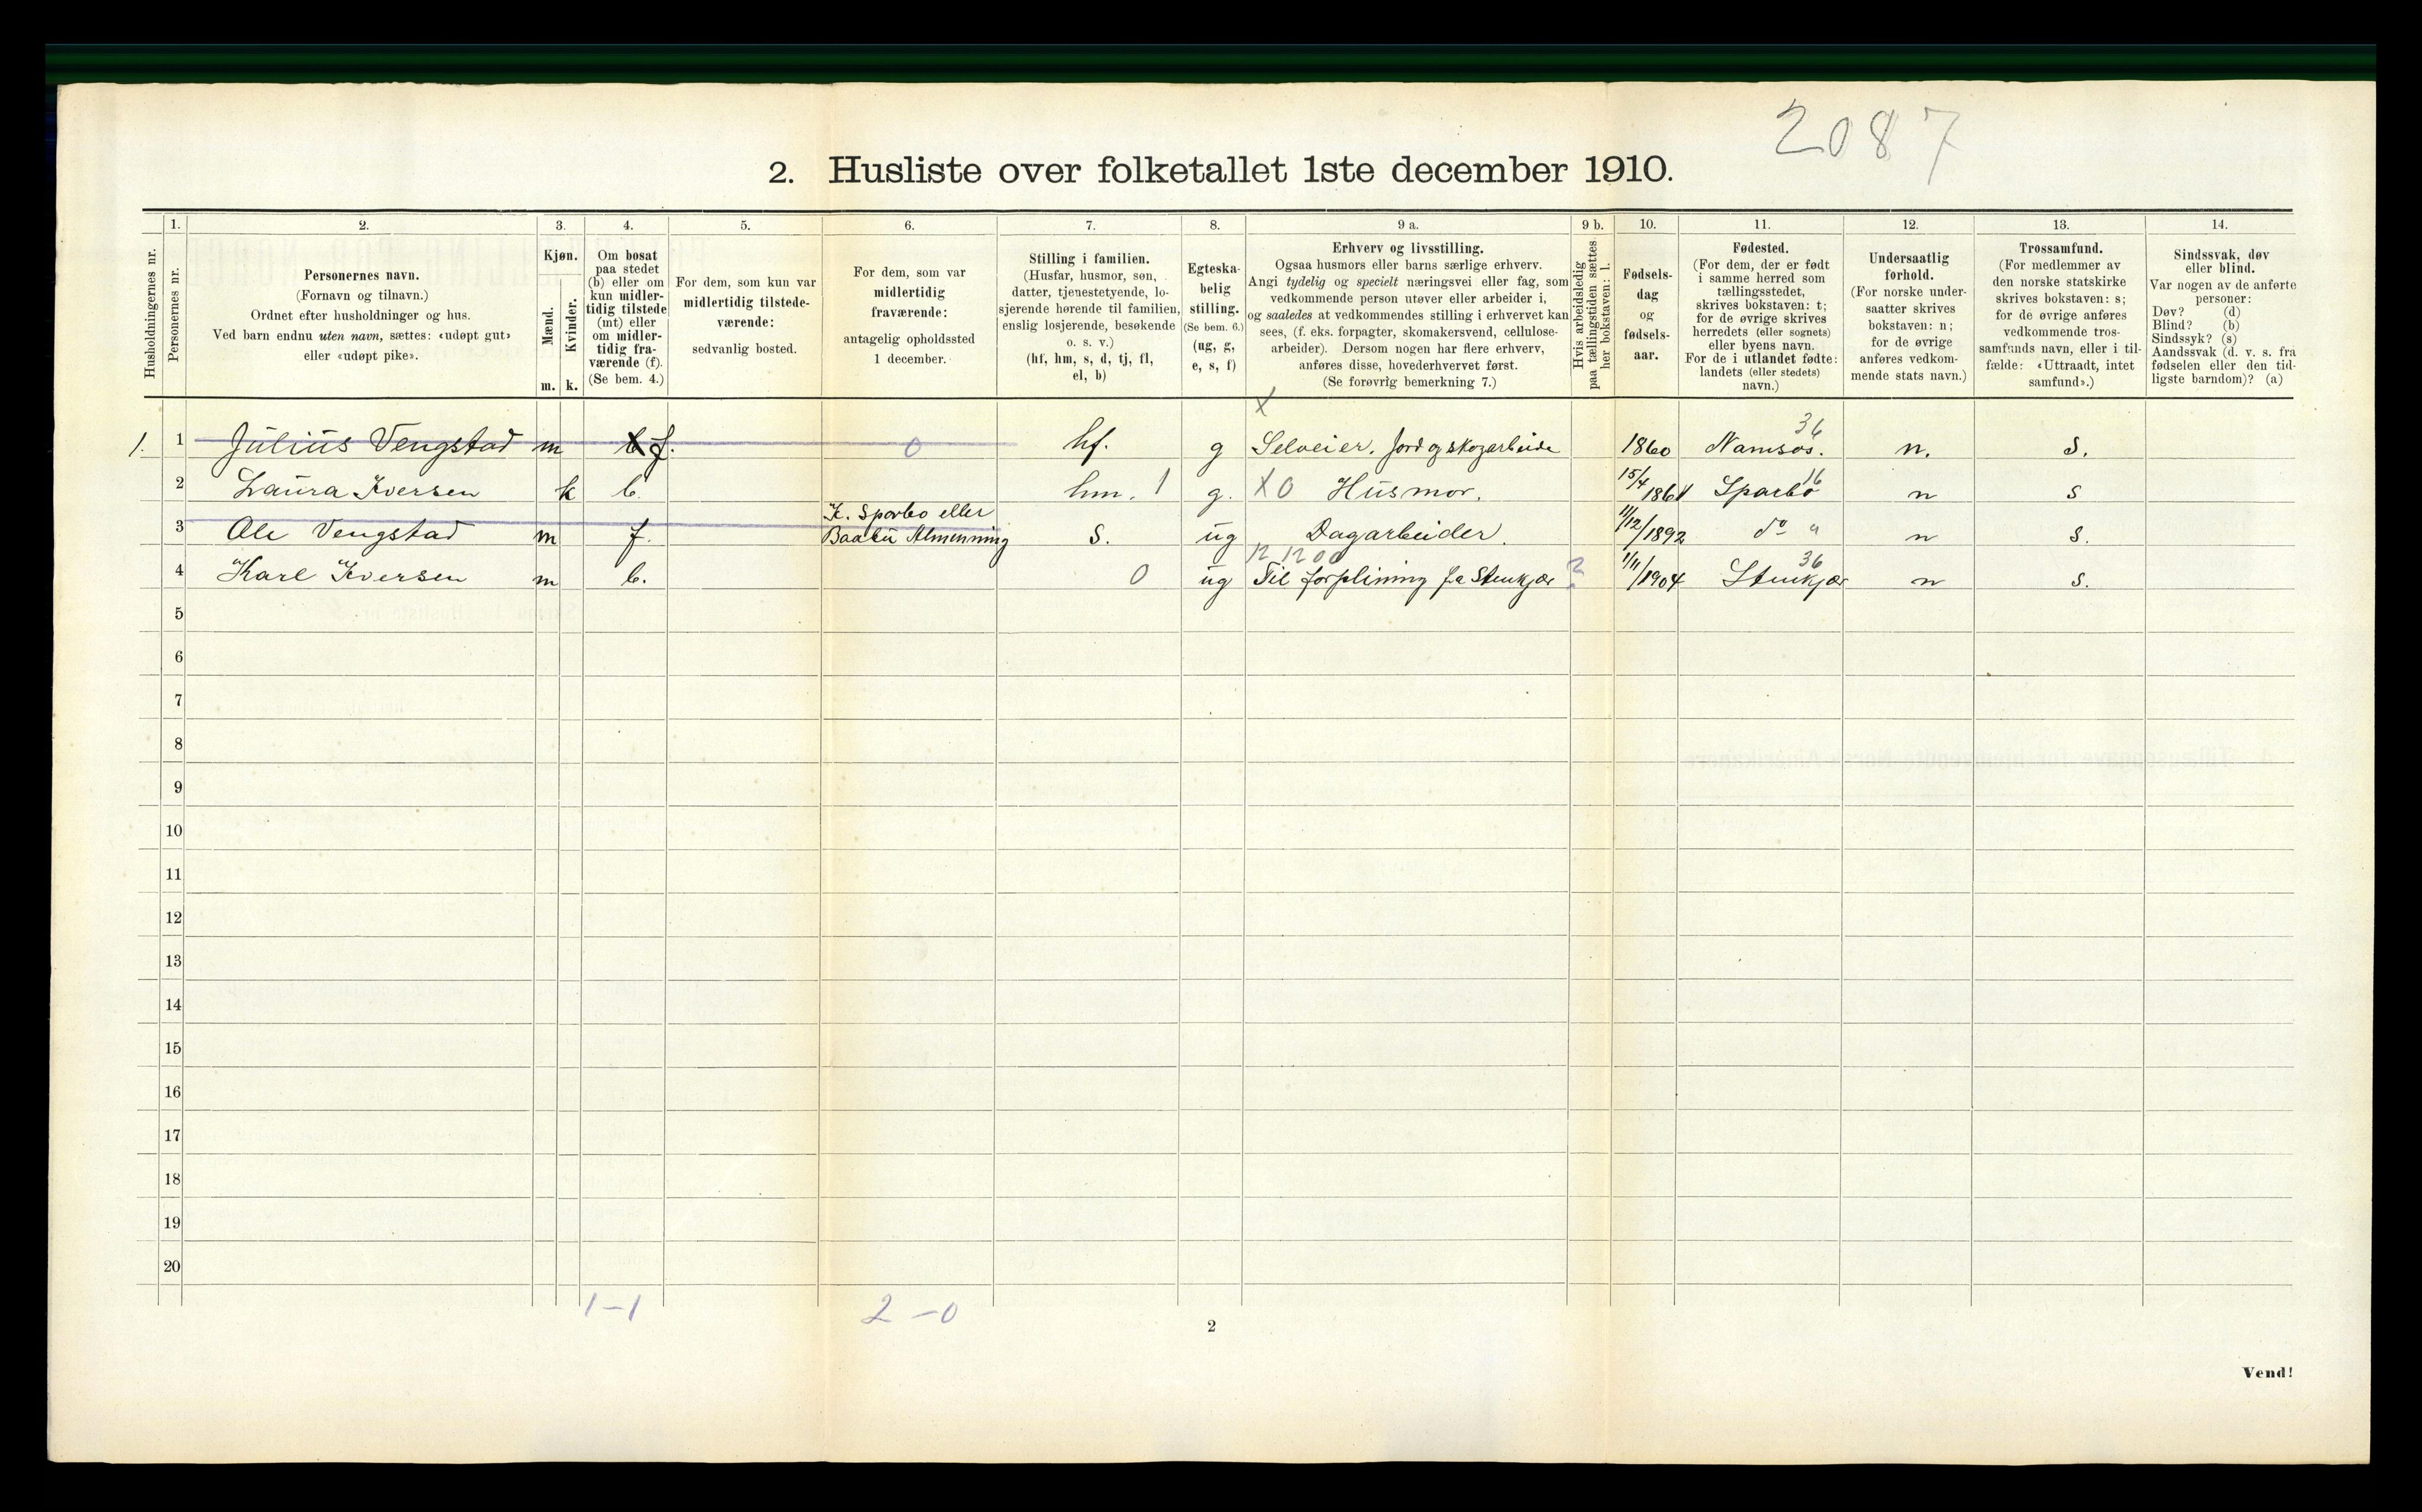 2087
2. Husliste over folketallet 1ste december 1910.
Husholdningernes nr.
1.
Personernes nr.
2.
Personernes navn.
(Fornavn og tilnavn.)
Ordnet efter husholdninger og hus.
Ved barn endnu uten navn, sættes: «udøpt gut»
eller «udøpt pike».
3.
Kjøn.
Mænd.
Kvinder.
m. k.
4.
Om bosat
paa stedet
(b) eller om
kun midler-
tidig tilstede
(mt) eller
om midler-
tidig fra-
værende (f).
(Se bem. 4.)
5.
For dem, som kun var
midlertidig tilstede-
værende:
sedvanlig bosted.
6.
For dem, som var
midlertidig
fraværende:
antagelig opholdssted
1 december.
7.
Stilling i familien.
(Husfar, husmor, søn,
datter, tjenestetyende, lo-
sjerende hørende til familien,
enslig losjerende, besøkende
o. s. v.)
(hf, hm, s, d, tj, fl,
el, b)
8.
Egteska-
belig
stilling.
(Se bem. 6.)
(ug, g,
e, s, f)
9 a.
Erhverv og livsstilling.
Ogsaa husmors eller barns særlige erhverv.
Angi tydelig og specielt næringsvei eller fag, som
vedkommende person utøver eller arbeider i,
og saaledes at vedkommendes stilling i erhvervet kan
sees, (f. eks. forpagter, skomakersvend, cellulose-
arbeider). Dersom nogen har flere erhverv,
anføres disse, hovederhvervet først.
(Se forøvrig bemerkning 7.)
9 b.
Hvis arbeidsledig
paa tællingstiden sættes
her bokstaven: l.
10.
Fødsels-
dag
og
fødsels-
aar.
11.
Fødested.
(For dem, der er født
i samme herred som
tællingsstedet,
skrives bokstaven: t;
for de øvrige skrives
herredets (eller sognets)
eller byens navn.
For de i utlandet fødte:
landets (eller stedets)
navn.)
12.
Undersaatlig
forhold.
(For norske under-
saatter skrives
bokstaven: n;
for de øvrige
anføres vedkom-
mende stats navn.)
13.
Trossamfund.
(For medlemmer av
den norske statskirke
skrives bokstaven: s;
for de øvrige anføres
vedkommende tros-
samfunds navn, eller i til-
fælde: «Uttraadt, intet
samfund».)
14.
Sindssvak, døv
eller blind.
Var nogen av de anførte
personer:
Døv? (d)
Blind? (b)
Sindssyk? (s)
Aandssvak (d. v. s. fra
fødselen eller den tid-
ligste barndom)? (a)
x 36
1. 1 Julius Vengstad m b f. 0 hf. g Selveier. Jord og skogarbeide 1860 Namsos. n. s.
16
2 Laura Iversen k b. hm. 1 g. X 0 Husmor. 15/4 1861 Sparbo n s
K. Sparbo eller
3 Ole Vengstad m f. Almenning s. ug Dagarbeider. 11/12/1892 do " n s.
12 1200 36
4 Karl Iversen m b. 0 ug Til forpleining fra Stenkjær ? 1/11/1904 Stenkjær n s.
5
6
7
8
9
10
11
12
13
14
15
16
17
18
19
20
1-1 2-0
2
Vend!